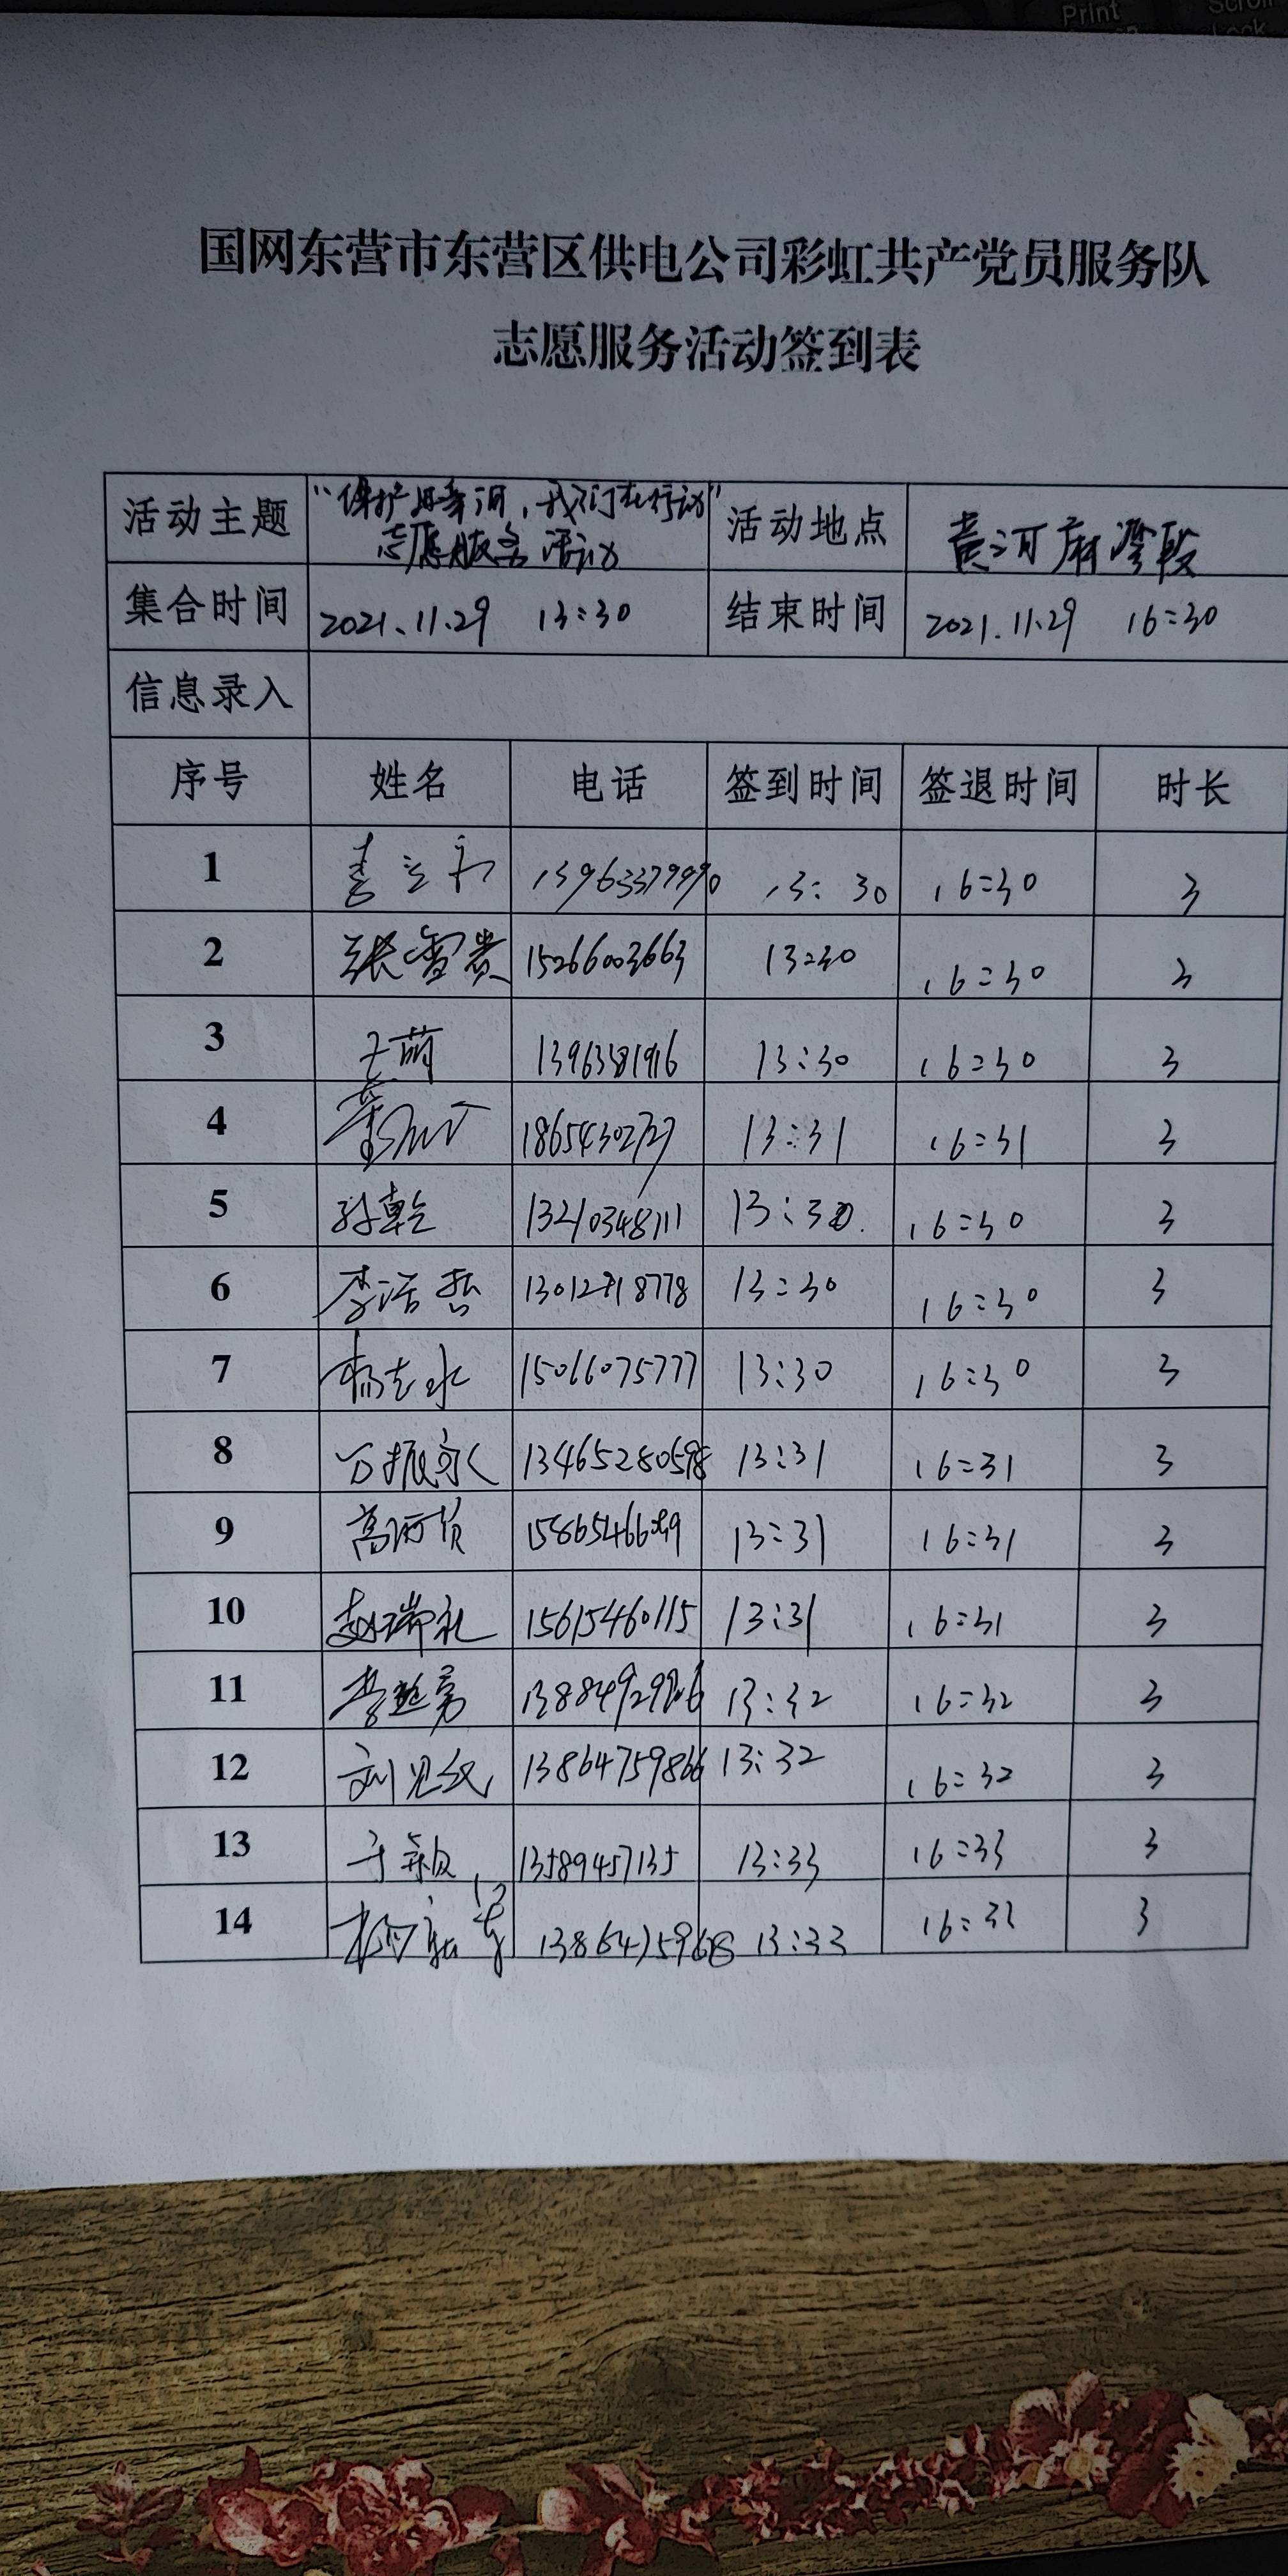 Print
Scroll
Lock
国网东营市东营区供电公司彩虹共产党员服务队
志愿服务活动签到表
活动主题 “保护母亲河,我们在行动” 志愿服务活动 活动地点 黄河麻湾段
集合时间 2021.11.29 13:30 结束时间 2021.11.29 16:30
信息录入
序号 姓名 电话 签到时间 签退时间 时长
1 13:30 16:30 3
2 张雪贵 15266003663 13:30 16:30 3
3 王萌 13963381916 13:30 16:30 3
4 13:31 16:31 3
5 孙乾 13210348111 13:30 16:30 3
6 李浩哲 13:30 16:30 3
7 杨志水 15066075777 13:30 16:30 3
8 13:31 16:31 3
9 13:31 16:31 3
10 赵瑞礼 15615460115 13:31 16:31 3
11 13:32 16:32 3
12 13864759866 13:32 16:32 3
13 于颖 13589457135 13:33 16:33 3
14 13:33 16:33 3